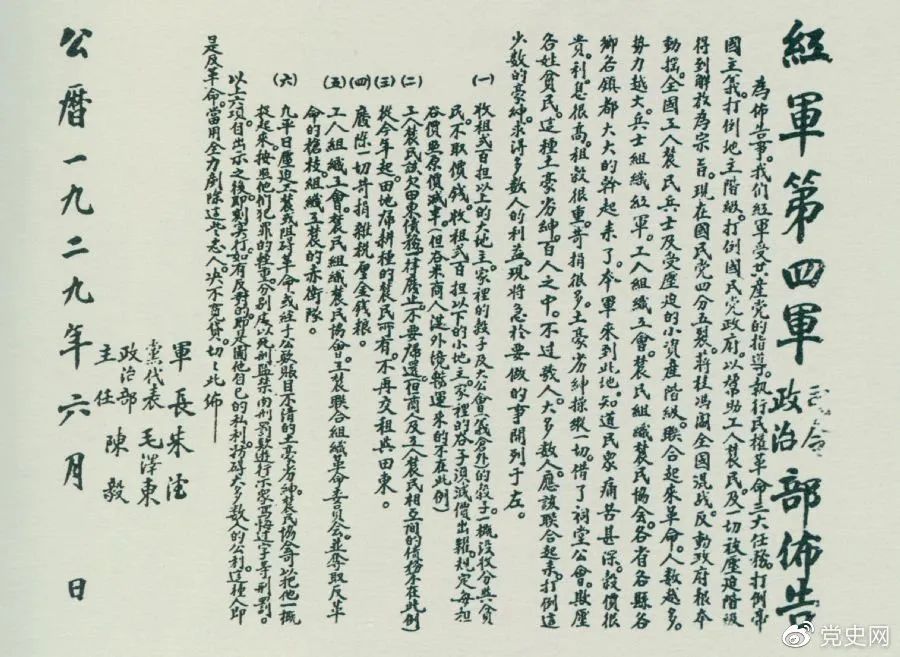 紅軍第四軍司令政治部佈告
為佈告事。我們紅軍受共產黨的指導。執行民權革命三大任務。打倒帝
國主義。打倒地主階級。打倒國民党政府。以幫助工人農民。及一切被壓迫階級
得到解放為宗旨。現在國民党四分五裂。蔣桂馮閻全國混战。反動政府根本
動摇。全國工人農民兵士及受壓迫的小資產階級。聯合起來革命。人数越多。
勢力越大。兵士組織紅軍。工人組織工會。農民組織農民協会。各省各縣各
鄉各鎮都大大的幹起來了。本軍來到此地。知道民衆痛苦甚深。穀價很
貴。利息很高。租穀很重。苛捐很多。土豪劣紳操縱一切。借了祠堂公會。欺壓
各姓貧民。這種土豪劣紳。百人之中。不过数人。大多数人。應該联合起來。打倒這
少数的豪紳。求得多数人的利益。現將急於要做的事開列于左。
(一) 收租弍百担以上的大地主。家裡的穀子及大公會(義倉外)的穀子。一概没收分與貧
民。不取價钱。收租弍百担以下的小地主。家裡的谷子。須減價出糶。規定每担
谷價照原價減半。(但谷米商人從外境辦運來的不在此例)
(二) 工人農民該欠田東債務。一律廢止。不要歸還。(但商人及工人農民相互間的債務不在此例)
(三) 從今年起。田地歸耕種的農民所有。不再交租與田東。
(四) 廢除一切苛捐雜税厘金錢粮。
(五) 工人組織工會。農民組織農民協會。工農联合組織革命委員会。並奪取反革
命的槍枝。組織工農的赤衛隊。
(六) 凡平日壓迫工農。或阻碍革命。或經手公欵賬目不清的土豪劣紳。農民協會可以把他一概
捉起來。按照他们犯罪的輕重。分别处以死刑監禁肉刑罰欵遊行示眾寫悔过字等刑罰。
以上六項。自出示之後。即刻实行。如有反對的。即是圖他自己的私利。妨碍大多数人的公利。這種人即
是反革命。當用全力剷除這些惡人。决不寬貸。切切此佈——
軍長 朱德
黨代表 毛澤東
政治部主任 陳毅
公曆一九二九年六月 日
党史网